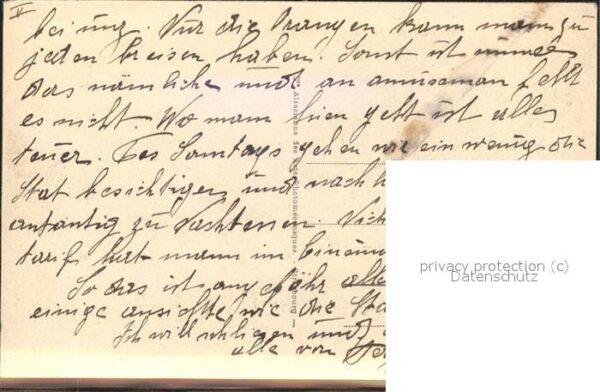 II
bei uns. Nur die Orangen kann man zu
jeden breisen haben. Sonst ist immer
das nämliche und an amuseman fehlt
es nicht. Wo mann hien geht ist alles
teuer. Des Sonntags gehen wir ein wenig die
Stat besichtigen und nach h
anfantig zu
tarif hat mann im
So das ist ungefähr alle
einige ansichte wie die Sta
Ich will schliesen und
alle von
privacy protection (c)
Datenschutz